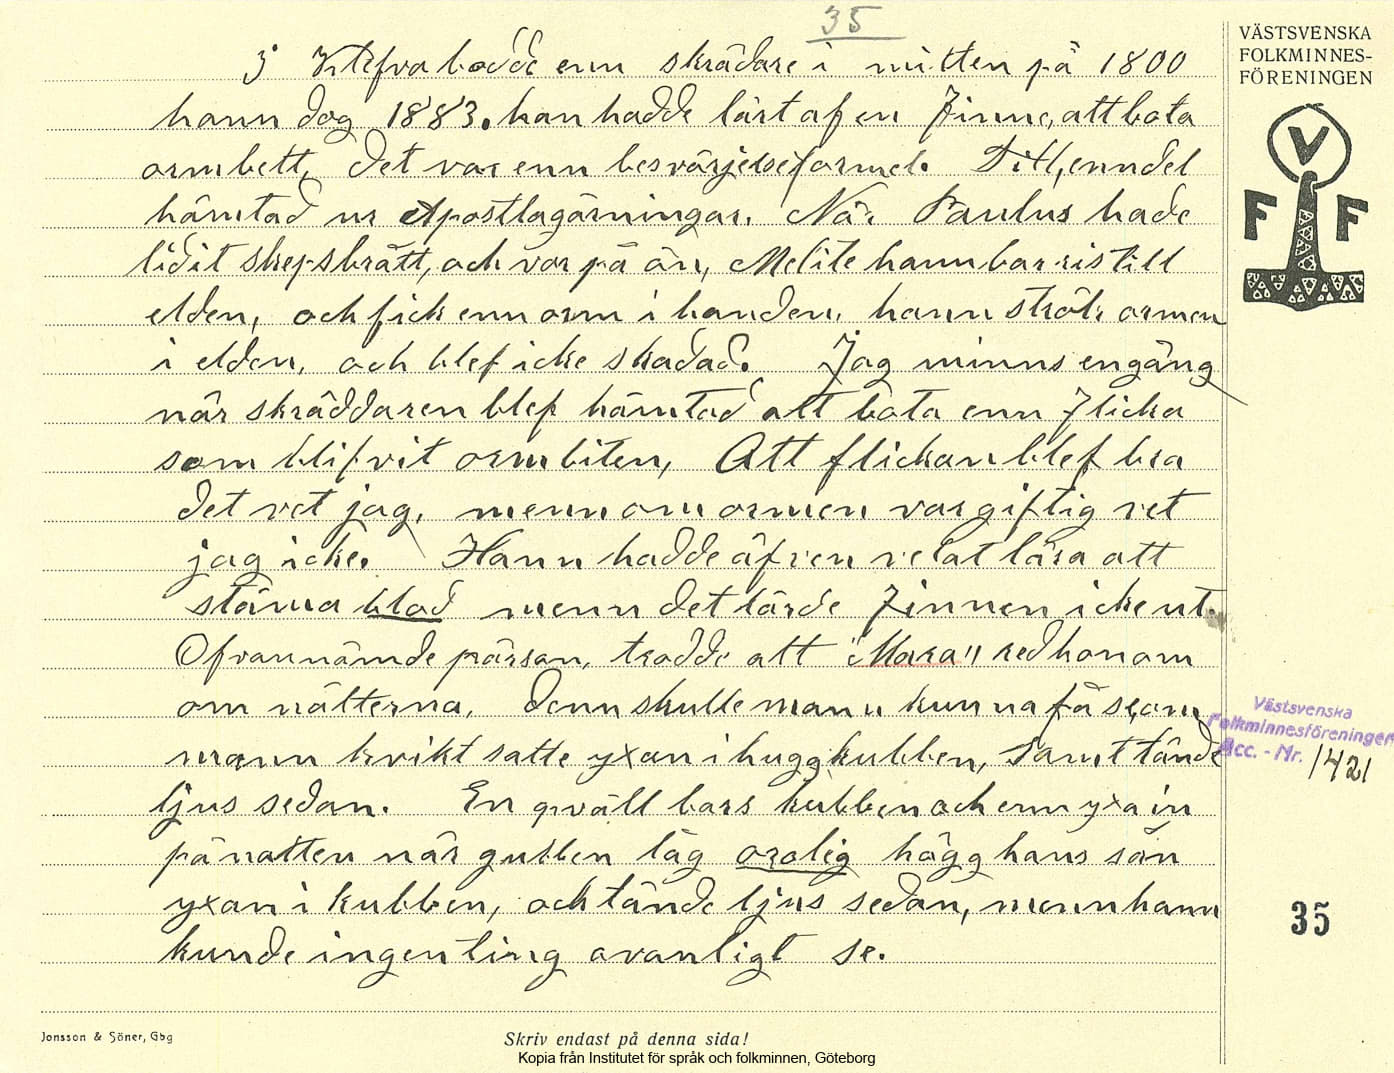 35
VÄSTSVENSKA
FOLKMINNES-
FÖRENINGEN
V
F F
I bodde enn skrädare i mitten på 1800
hann dog 1883. han hadde lärt af en Finne, att bota
ormbett, det var enn besvärjelseformel. Till, enn del
hämtad ur Apostlagärningar. När Paulus hade
lidit skepsbrått, och var på ön, Melite hann bar ris till
elden, och fick enn orm i handen. hann strök ormen
i elden, och blef icke skadad. Jag minns engång
när skräddaren blef hämtad att bota enn flicka
som blifvit ormbiten, Att flickan blef bra
det vet jag, menn om ormen var giftig vet
jag icke. Hann hadde äfven velat lära att
stämma blod menn det lärde Finnen icke ut.
Ofvannämde pärson, trodde att "Mara" red honom
om nätterna. Denn skulle mann kunna få se, om
mann kvikt satte yxan i huggkubben, samt tände
ljus sedan. En qväll bars kubben och enn yxa in
på natten när gubben låg orolig högg hans sån
yxan i kubben, och tände ljus sedan, menn hann
kunde ingenting ovanligt se.
Västsvenska
Folkminnesföreningen
Acc. - Nr. 1421
35
Jonsson & Söner, Gbg
Skriv endast på denna sida!
Kopia från Institutet för språk och folkminnen, Göteborg